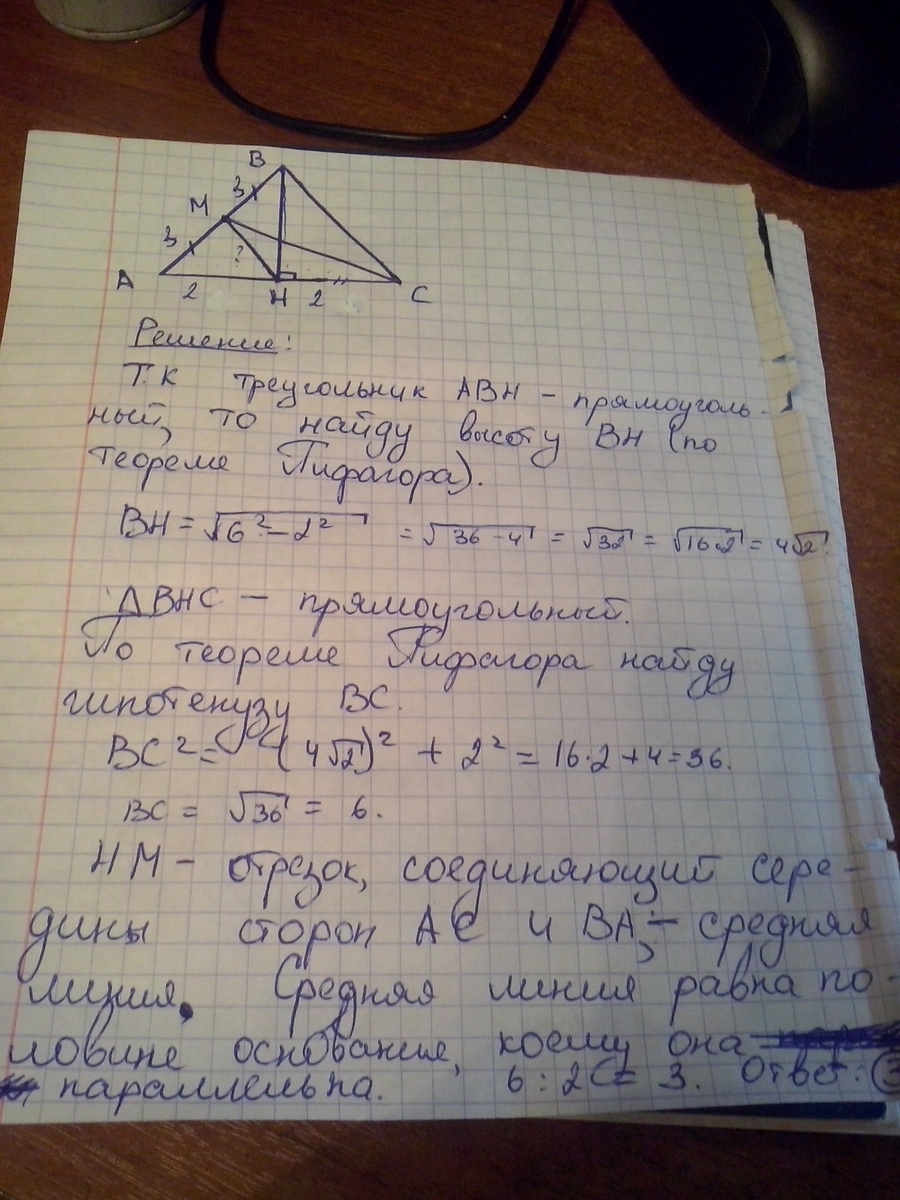 B
3
M
3
?
A
2
H
2
C
Решение:
Т.К треугольник ABH – прямоуголь-
ный, то найду высоту BH (по
теореме Пифагора).
BH = √6² – 2² = √36 – 4 = √32 = √16·2 = 4√2
ΔBHC – прямоугольный.
По теореме Пифагора найду
гипотенузу BC.
BC² = (4√2)² + 2² = 16·2 + 4 = 36.
BC = √36 = 6.
HM – отрезок, соединяющий сере-
дины сторон AC и BA, – средняя
линия. Средняя линия равна по-
ловине основание, коему она
параллельна. 6 : 2 = 3. Ответ: 3